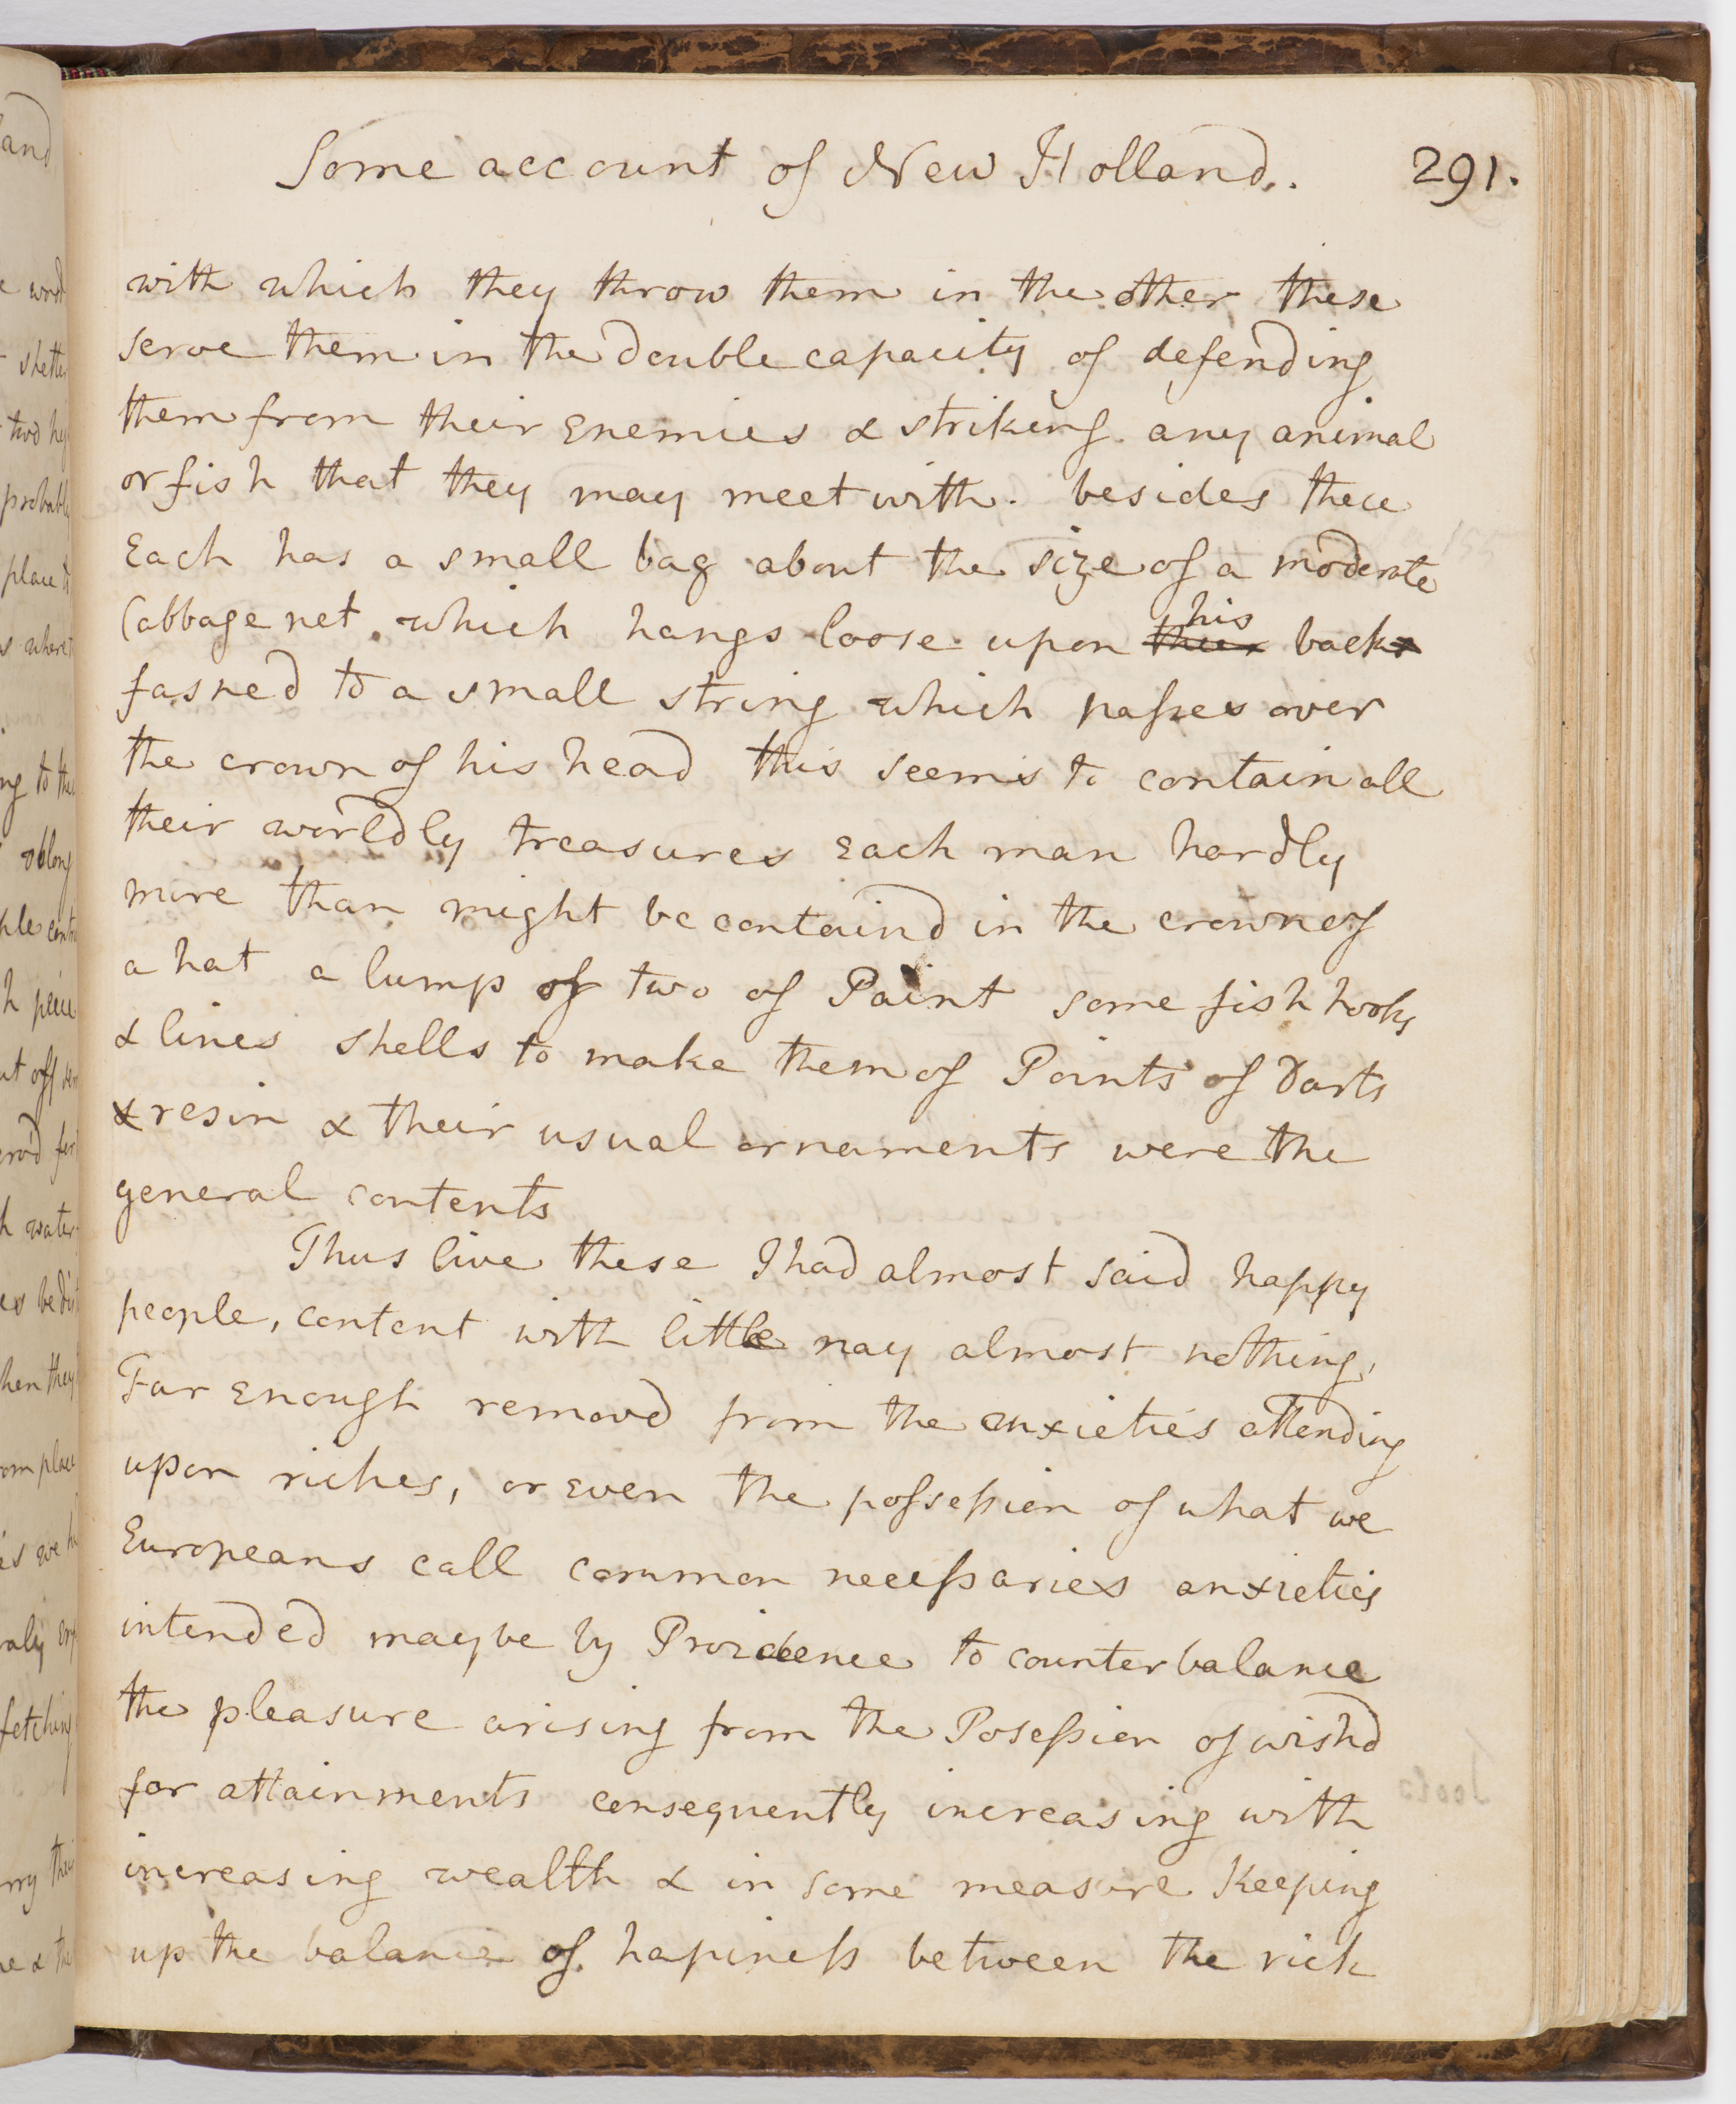 Some account of New Holland. 291.
with which they throw them in the other these
serve them in the double capacity of defending
them from their Enemies & striking any animal
or fish that they may meet with. besides these
Each has a small bag about the size of a moderate
Cabbage net which hangs loose upon their his backs
fasned to a small string which passes over
the crown of his head this seems to contain all
their worldly treasures Each man hardly
more than might be containd in the crown of
a hat a lump or two of Paint some fish hooks
& lines shells to make them of Points of Darts
& resin & their usual ornaments were the
general contents
Thus live these I had almost said happy
people, content with little nay almost nothing,
Far enough removd from the anxieties attending
upon riches, or even the possession of what we
Europeans call common necessaries anxieties
intended maybe by Providence to counterbalance
the pleasure arising from the Posession of wishd
for attainments consequently increasing with
increasing wealth & in some measure Keeping
up the balance of hapiness between the rich